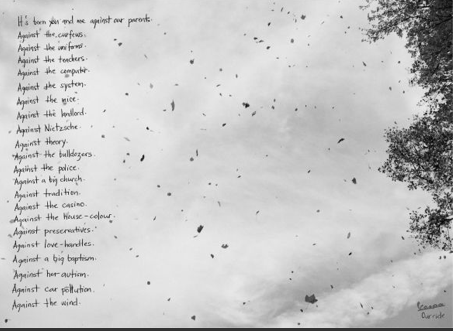 It's been you and me against our parents.
Against the curfews.
Against the uniforms.
Against the teachers.
Against the computer.
Against the system.
Against the mice.
Against the landlord.
Against Nietzsche.
Against theory.
Against the bulldozers.
Against the police.
Against a big church.
Against tradition.
Against the casino.
Against the House-colour.
Against preservatives.
Against love-handles.
Against a big baptism.
Against her autism.
Against car pollution.
Against the wind.